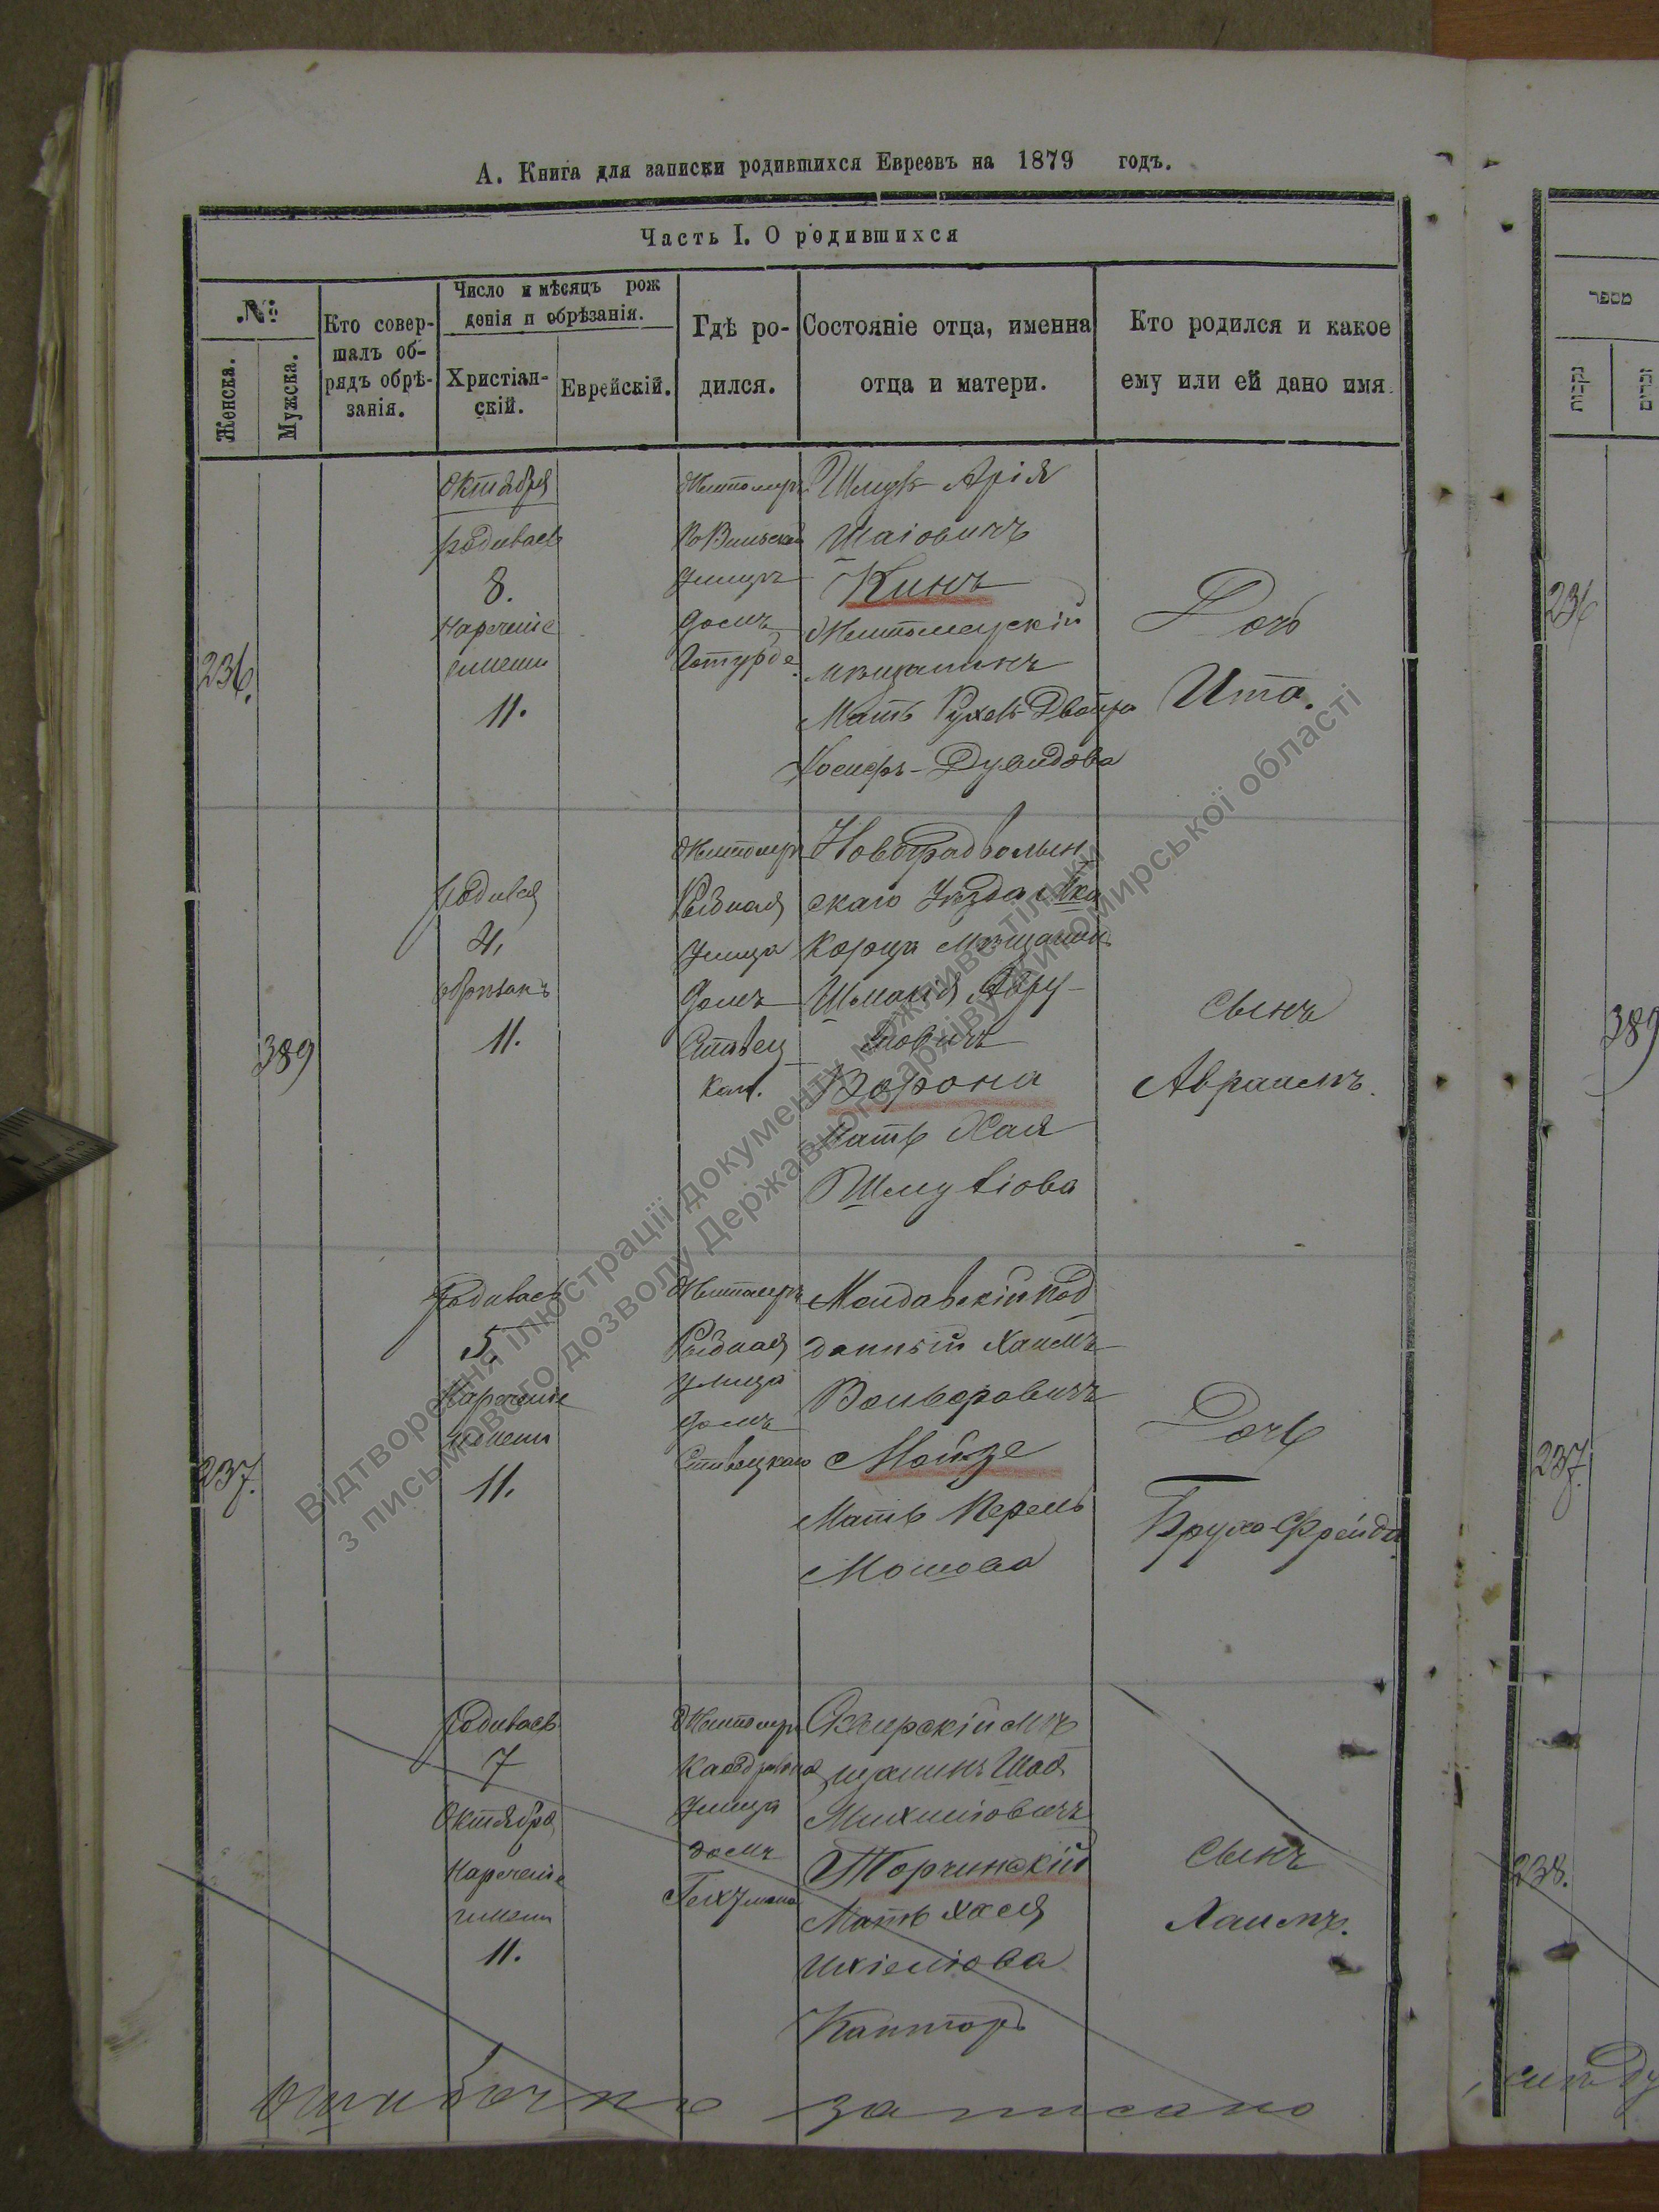 А. Книга для записки родившихся Евреевъ на 1879 годъ.
Часть I. О родившихся
№
Женска.
Мужска.
Кто совер-
шалъ об-
рядъ обрѣ-
занія.
Число и мѣсяцъ рож
денія и обрѣзанія.
Христіан-
скій.
Еврейскій.
Гдѣ ро-
дился.
Состояніе отца, именна
отца и матери.
Кто родился и какое
ему или ей дано имя.
236.
Октября
родилась
8.
Нареченіе
имени
11.
Житомиръ
улицѣ
домъ
Арія
Шаіовичъ
Кинъ
Житомирскій
мѣщанинъ
Мать Рухля Двойра
Дувидова
Дочь
Ита.
389
родился
4.
обрѣзанъ
11.
Житомиръ
Рыбная
улица
домъ
Новоградволын
скаго Уѣзда М-ка
Корца мѣщанинъ
Авру-
мовичъ
Ворона
Мать Хая
Шмулiова
Сынъ
Авраамъ.
237.
Родилась
5.
Нареченіе
имени
11.
Житомиръ
Рыбная
улица
домъ
Ставецкаго
Молдавскій под
данный Хаимъ
Вольфовичъ
Мойзе
Мать Перель
Мошова
Дочь
Бруха-Фрейда
родилась
7
Октября
Нареченіе
имени
11.
Житомиръ
улица
домъ
мѣ
щанинъ
Торчинскій
Мать Хася
Кантор
Сынъ
Хаимъ.
Ошибочно записано
מספר
נקבות
זכרים
236
389
237.
238.
Відтворення ілюстрації документу можливе тільки
з письмового дозволу Державного архіву Житомирської області